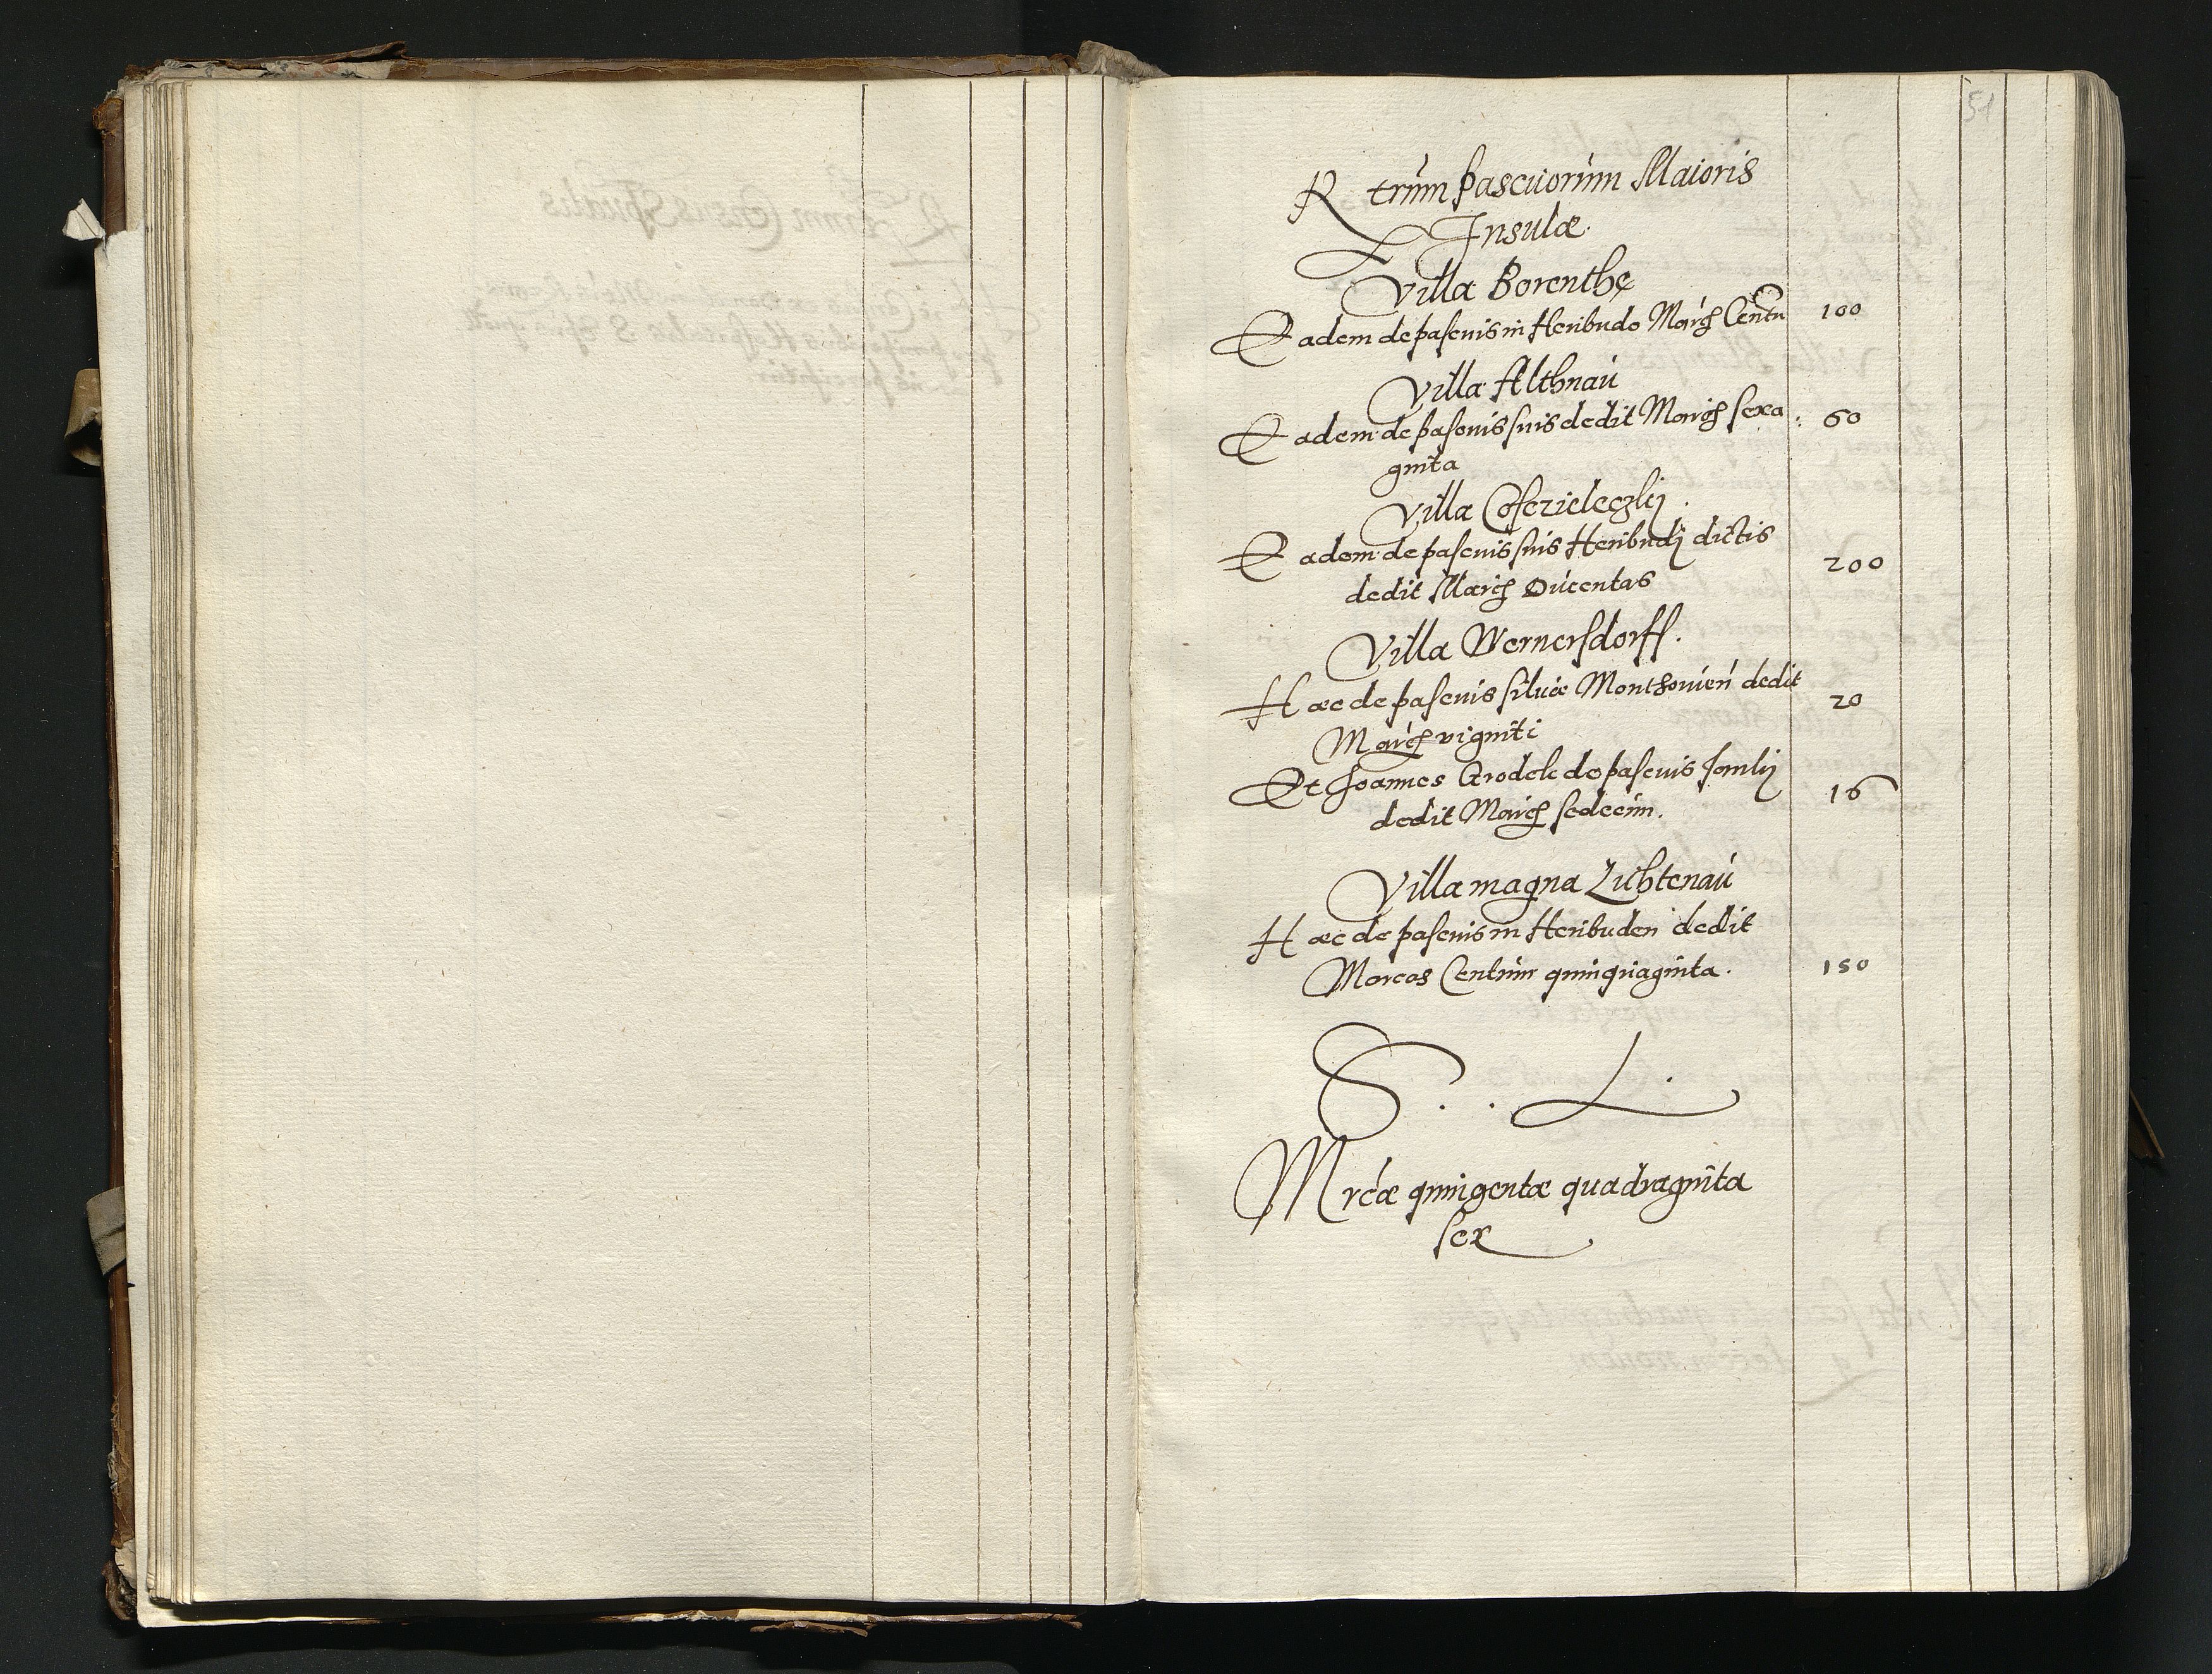 51
Rtrum pascuorum Maioris
Insulæ.
Villa Borenthe
Eadem de pascuis in Heribudo Març Centũ 100
Villa Althnau
Eadem de pascuis suis dedit Març sexa: 60
ginta
Villa Cosczieleczkÿ.
Eadem de pascuis suis Heribudÿ dictis
dedit Març Ducentas 200
Villa Wernersdorff.
Hæc de pascuis siluæ Monthouien̄ dedit 20
Març viginti
Et Joannes Grodek de pascuis
dedit Març sedecim. 16
Villa magna Lichtenau
Hæc de pascuis in Heribuden dedit
Marcas Centum quinquaginta. 150
S. . L.
Mrcæ quingentæ quadraginta
sex